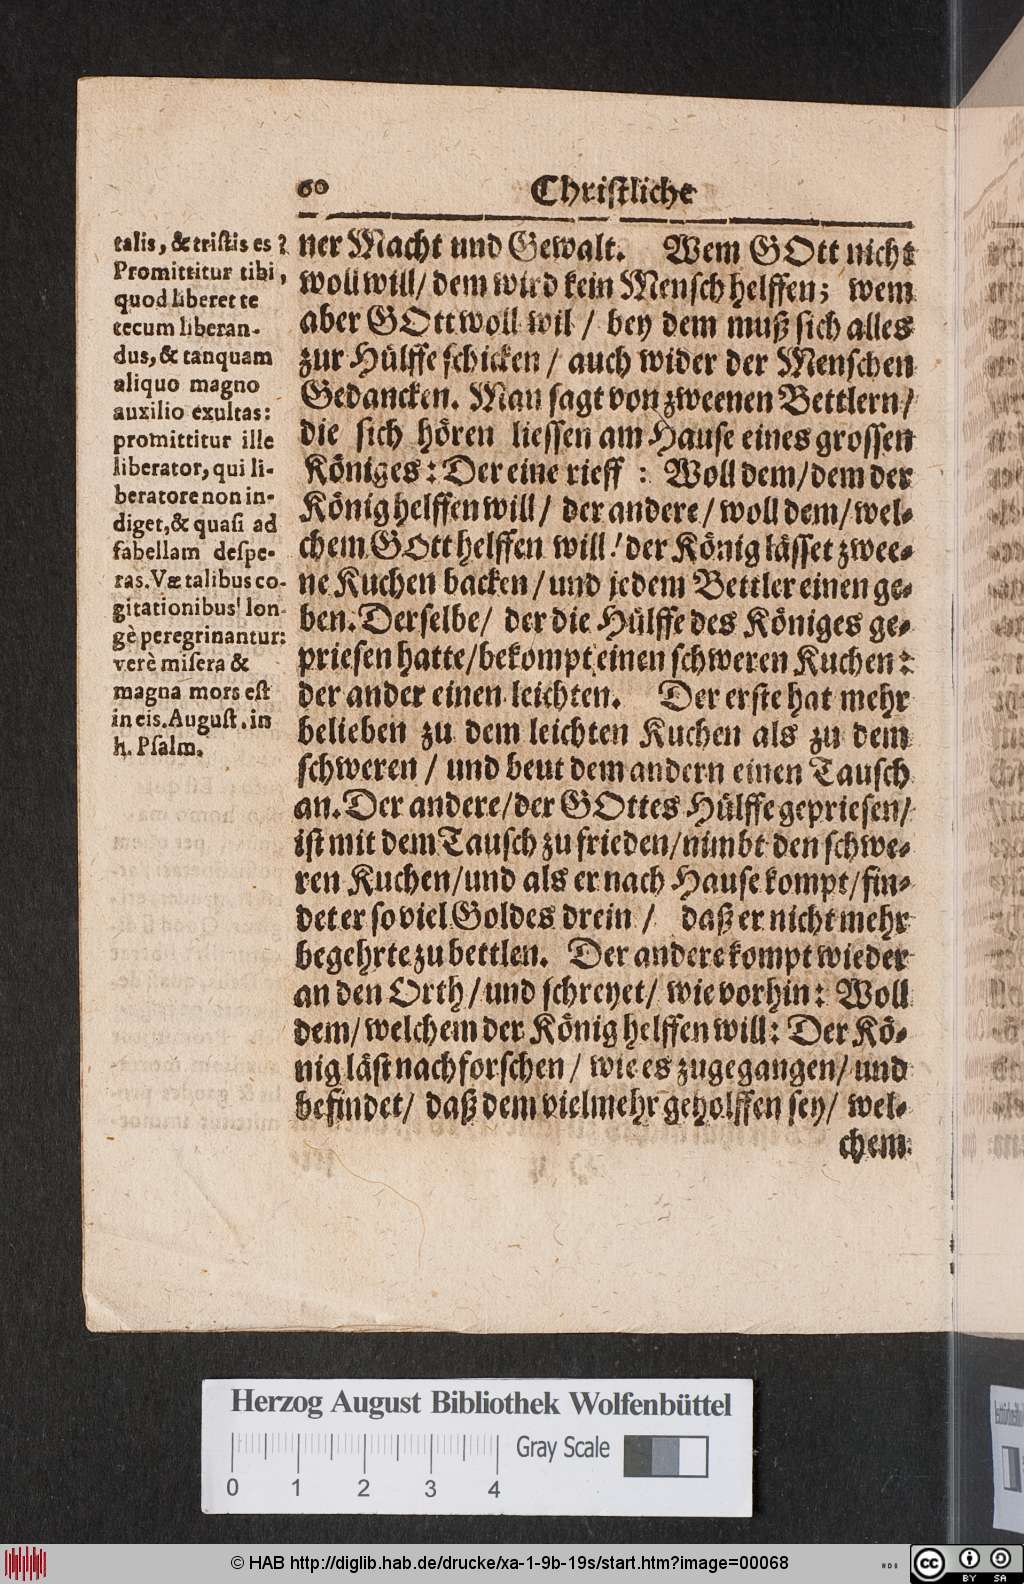 60 Christliche
talis, & tristis es?
Promittitur tibi,
quod liberet te
tecum liberan-
dus, & tanquam
aliquo magno
auxilio exultas:
promittitur ille
liberator, qui li-
beratore non in-
diget, & quasi ad
fabellam despe-
ras. Væ talibus co-
gitationibus! lon-
gè peregrinantur:
verè misera &
magna mors est
in eis. August. in
h. Psalm.
ner Macht und Gewalt. Wem GOtt nicht
woll will/ dem wird kein Mensch helffen; wem
aber GOtt woll wil / bey dem muß sich alles
zur Hülffe schicken / auch wider der Menschen
Gedancken. Man sagt von zweenen Bettlern/
die sich hören liessen am Hause eines grossen
Königes: Der eine rieff : Woll dem/ dem der
König helffen will/ der andere/ woll dem/ wel-
chem GOtt helffen will! der König lässet zwee-
ne Kuchen backen / und jedem Bettler einen ge-
ben. Derselbe/ der die Hülffe des Königes ge-
priesen hatte/ bekompt einen schweren Kuchen:
der ander einen leichten. Der erste hat mehr
belieben zu dem leichten Kuchen als zu dem
schweren / und beut dem andern einen Tausch
an. Der andere/ der GOttes Hülffe gepriesen/
ist mit dem Tausch zu frieden/ nimbt den schwe-
ren Kuchen/ und als er nach Hause kompt/ fin-
det er so viel Goldes drein / daß er nicht mehr
begehrte zu bettlen. Der andere kompt wieder
an den Orth/ und schreyet/ wie vorhin: Woll
dem/ welchem der König helffen will: Der Kö-
nig läst nachforschen / wie es zugegangen/ und
befindet/ daß dem vielmehr geholffen sey/ wel-
chem
Herzog August Bibliothek Wolfenbüttel
0 1 2 3 4 Gray Scale
© HAB http://diglib.hab.de/drucke/xa-1-9b-19s/start.htm?image=00068
cc BY SA